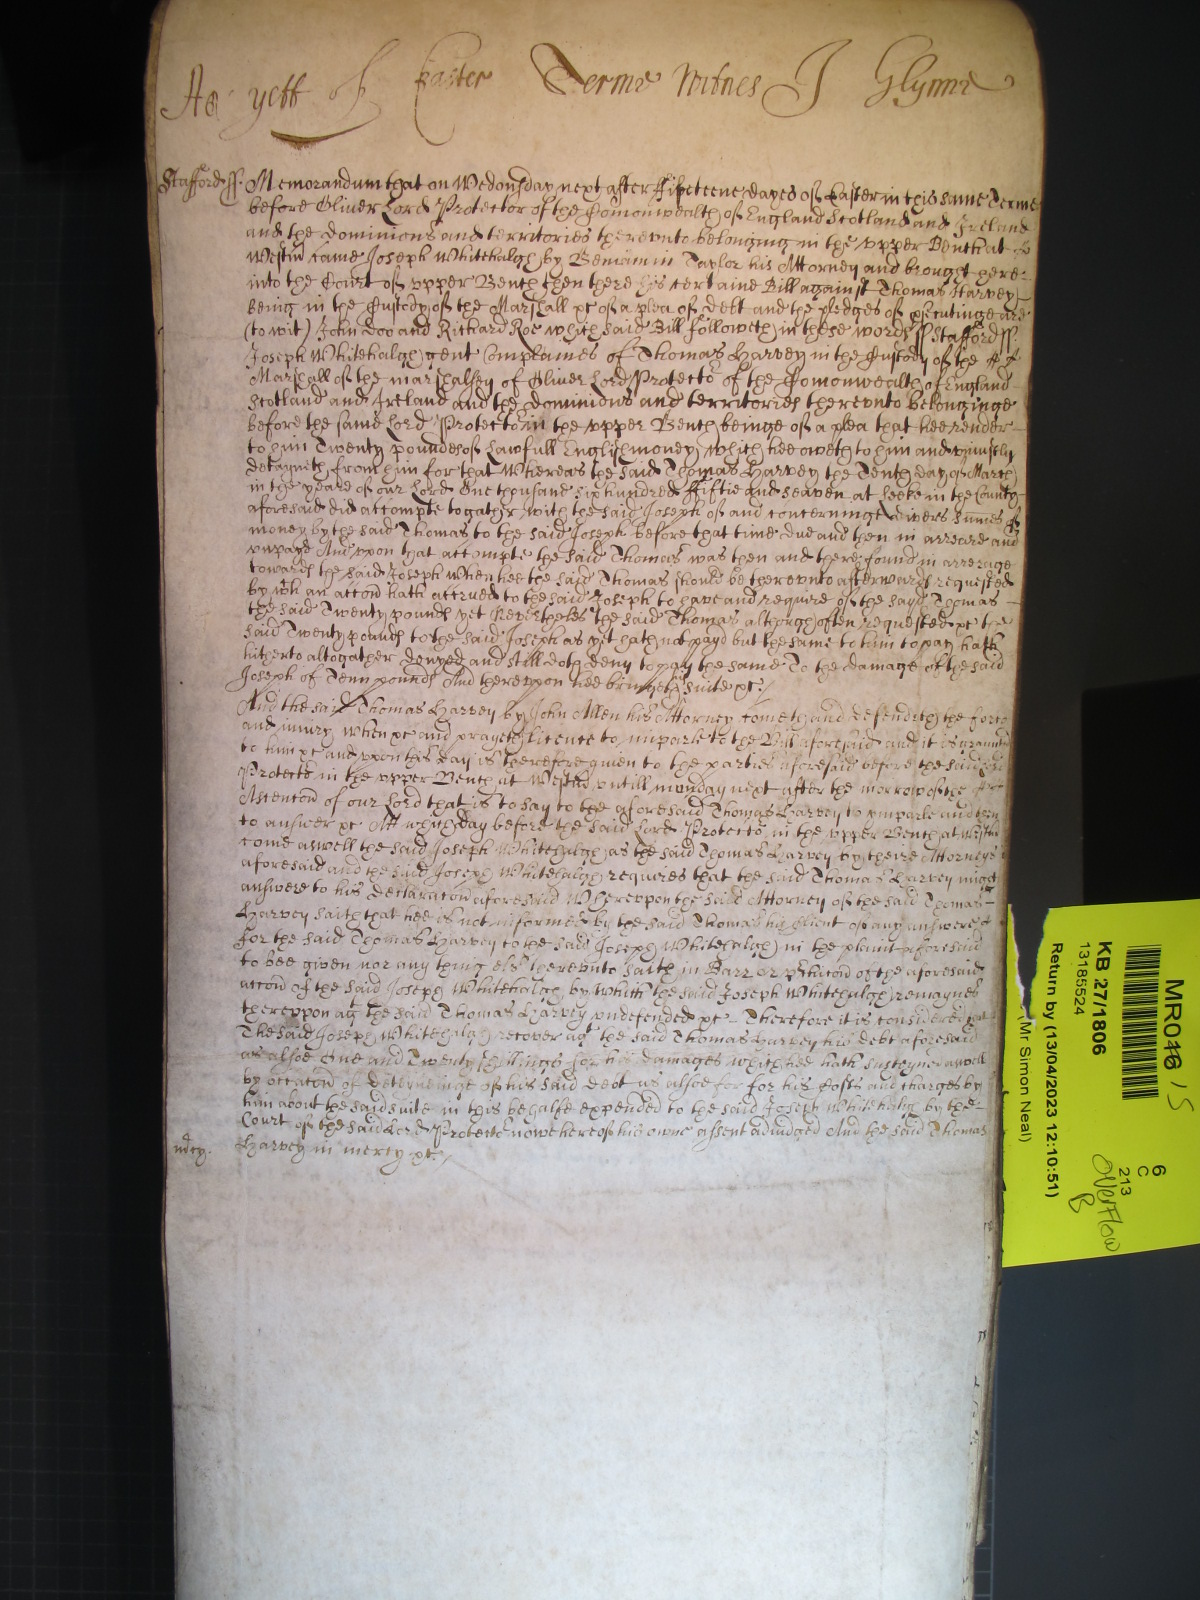 As yett of Easter Terme Witnes J Glynne
Stafford ss. Memorandum that on Wedonsday next after Fifteene dayes of Easter in this same Terme
before Oliver Lord Protector of the Comonwealth of England Scotland and Ireland
and the dominions and territories therevnto belonging in the vpper Bench at
Westm̃ came Joseph Whitehalgh by Beniamin Taylor his Attorney and brought here
into the Court of vpper Bench then there his certaine Bill against Thomas Harvey
being in the Custody of the Marshall &c of a plea of debt and the pledges of prosecutinge are
(to wit) John Doo and Richard Roe which said Bill followeth in these words ss Stafford ss.
Joseph Whitehalgh gent Complaines of Thomas Harvey in the Custody of the
Marshall of the marshalsey of Oliver Lord Protector of the Comonwealth of England
Scotland and Ireland and the dominions and territories therevnto belonginge
before the same Lord Protector in the vpper Bench beinge of a plea that hee render
to him Twenty poundes of Lawfull English money which hee oweth to him and vniustly
detayneth from him for that Whereas the said Thomas Harvey the Tenth day of March
in the yeare of our Lord One thousand six hundred Fiftie and seaven at Leeke in the County
aforesaid did accompte togather with the said Joseph of and concerninge divers sum̃es of
money by the said Thomas to the said Joseph before that time due and then in arreare and
vnpayd And vpon that accompte the said Thomas was then and there found in arrerage
towards the said Joseph When hee the said Thomas should be therevnto afterwards requested
by wch an accon hath accrued to the said Joseph to have and require of the sayd Thomas
the said Twenty pounds yet Nevertheles the said Thomas although often requested &c the
said Twenty pounds to the said Joseph as yet hath not payd but the same to him to pay hath
hitherto altogather denyed and still doth deny to pay the same To the damage of the said
Joseph of Tenn pounds And therevpon hee bringeth suite &c.
And the said Thomas Harvey by John Allen his Attorney cometh and defendeth the force
and iniury when &c and prayeth licence to imparle to the Bill aforesaid and it is graunted
to him &c and vpon this day is therefore given to the parties aforesaid before the said Lord
Protector in the vpper Bench at Westm̃ vntill munday next after the morrow of the
Ascencon of our Lord that is to say to the aforesaid Thomas Harvey to imparle and then
to answer &c Att which day before the said Lord Protector in the vpper Bench at Westm̃
come aswell the said Joseph Whitehalgh as the said Thomas Harvey by theire Attorneys
aforesaid and the said Joseph Whitehalgh requires that the said Thomas Harvey might
answere to his declaracon aforesaid Wherevpon the said Attorney of the said Thomas
Harvey saith that hee is not informed by the said Thomas his Client of any answere
for the said Thomas Harvey to the said Joseph Whitehalgh in the plaint aforesaid
to bee given nor any thing els therevnto saith in Barr or of the aforesaid
accon of the said Joseph Whitehalgh by which the said Joseph Whitehalgh remaynes
therevpon agt the said Thomas Harvey vndefended &c Therefore it is considered
The said Joseph Whitehalgh recover agt the said Thomas Harvey his debt aforesaid
as alsoe One and Twenty shillings for his damages which hee hath susteyned aswell
by occacon of deteyneinge of his said debt as alsoe for for his Costs and charges by
him about the said suite in this behalfe expended to the said Joseph Whitehalg by the
Court of the said Lord Protector nowe here of his owne assent adiudged And the said Thomas
Harvey in mercy &c.
mcy.
MR046 /5
KB 27/1806
13185524
Return by (13/04/2023 12:10:51)
(Mr Simon Neal)
6
C
213
OverFlow
B